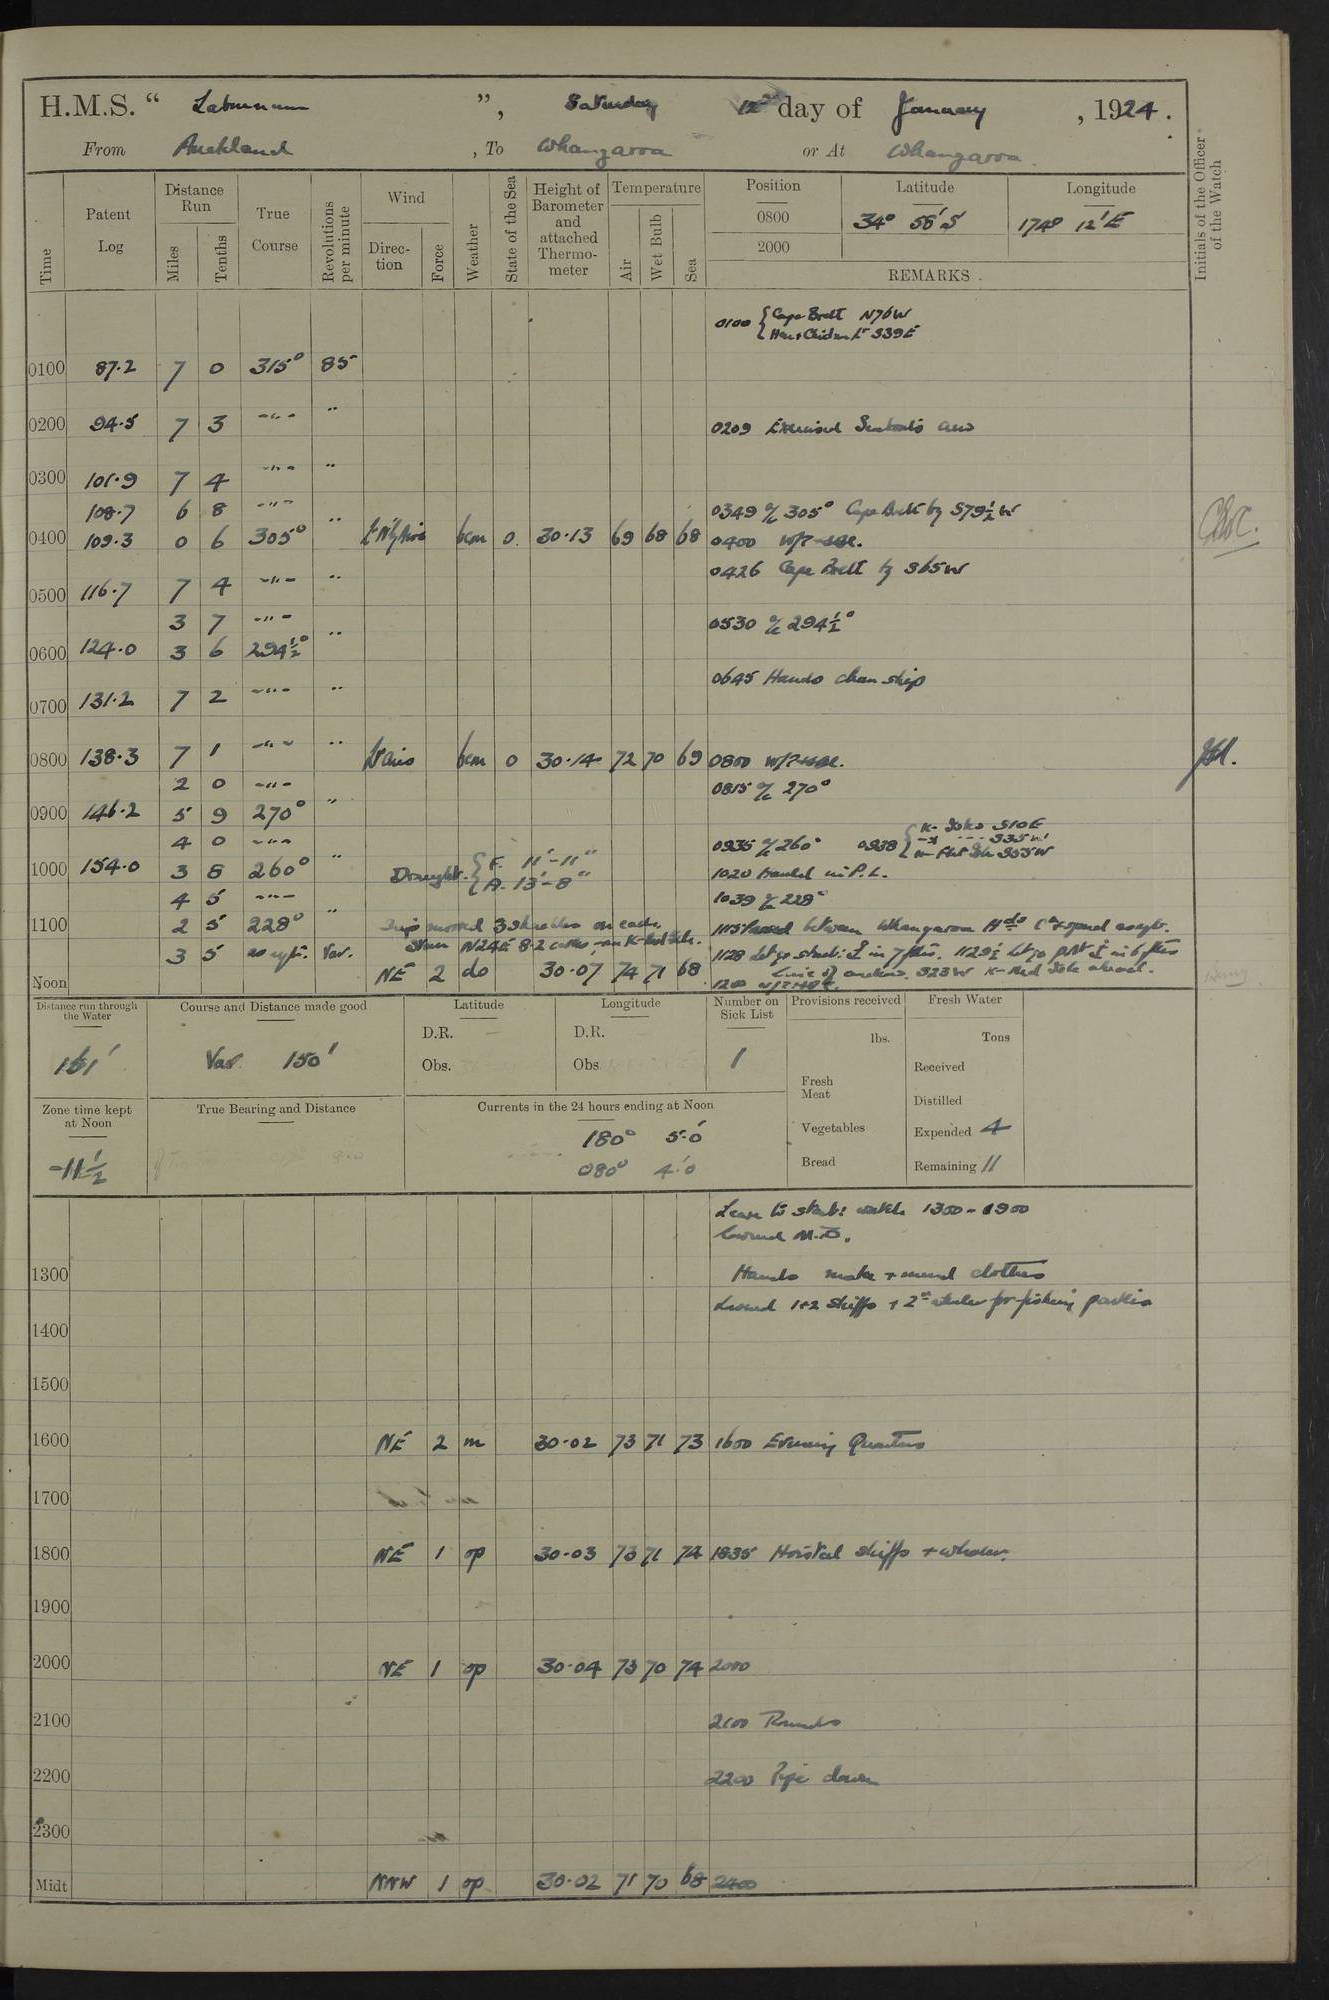 H.M.S. “ Laburnum ”, Saturday 12th day of January , 1924.
From Auckland , To Whangaroa or At Whangaroa.
Time
Patent Log
Distance Run
Miles
Tenths
True Course
Revolutions per minute
Wind
Direc- tion
Force
Weather
State of the Sea
Height of Barometer and attached Thermo- meter
Temperature
Air
Wet Bulb
Sea
Position Latitude Longitude
0800 34° 56' S 174° 12' E
2000
REMARKS.
Initials of the Officer of the Watch
0100 { Cape Brett N76W
S39E
0100 87.2 7 0 315° 85
0200 94.5 7 3 -"- " 0209 Exercised Seaboats crew
0300 101.9 7 4 -"- "
108.7 6 8 -"- 0349 a/c 305° Cape Brett by S79½W
0400 109.3 0 6 305° " bcm 0. 30.13 69 68 68 0400
0426 Cape Brett by S65W
0500 116.7 7 4 -"- "
3 7 -"- 0530 a/c 294½°
0600 124.0 3 6 294½° "
0645 Hands clean ship
0700 131.2 7 2 -"- "
0800 138.3 7 1 -"- " Lt airs bcm 0 30.14 72 70 69 0800
2 0 -"- 0815 a/c 270°
0900 146.2 5 9 270° "
4 0 -"- 0935 a/c 260° 0938 { S10E
S35W
S55W
1000 154.0 3 8 260° " Draught. { F. 11'-11"
A. 13'-8"
1020 Handed in P.L.
4 5 -"- 1039 a/c 228°
1100 2 5 228° " Ship moored 3 shackles on each.
1115 Passed between Whangaroa Hds Co & speed as reqte.
3 5 as reqte. Var. N24E 8.2 cables
1128 let go starbd: in 7 fms. 1129½ let go port in 6 fms
Line of anchors. S23W
Noon NE 2 do 30.07 74 71 68 1200
Distance run through the Water
161'
Course and Distance made good
Var 150'
Latitude
D.R. -
Obs.
Longitude
D.R. -
Obs
Number on Sick List
1
Provisions received
lbs.
Fresh Meat
Vegetables
Bread
Fresh Water
Tons
Received
Distilled
Expended 4
Remaining 11
Zone time kept at Noon
-11½
True Bearing and Distance
Currents in the 24 hours ending at Noon
180° 5'.0
080° 4'.0
Leave to starbd: watch 1300 - 1900
Lowered M.B.
1300 Hands make & mend clothes
Lowered 1 & 2 skiffs & 2nd whaler for fishing parties
1400
1500
1600 NE 2 m 30.02 73 71 73 1600 Evening Quarters
1700
1800 NE 1 op 30.03 73 71 74 1835 Hoisted skiffs & whaler.
1900
2000 NE 1 op 30.04 73 70 74 2000
2100 2100 Rounds
2200 2200 Pipe down
2300
Midt NNW 1 op 30.02 71 70 68 2400